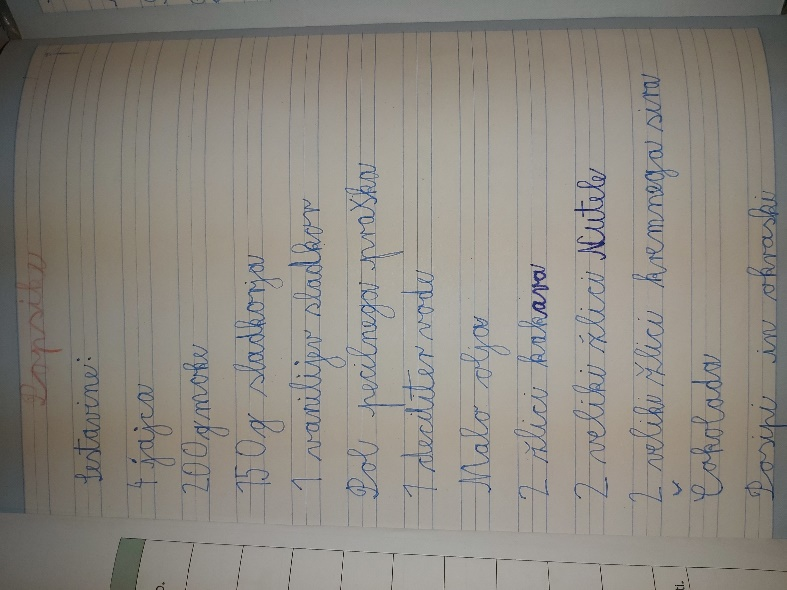 Popsike
Sestavine:
4 jajca
200g moke
150g sladkorja
1 vanilijev sladkor
Pol pecilnega praška
1 deciliter vode
Malo olja
2 žlici kakava
2 veliki žlici Nutele
2 veliki žlici kremnega sira
Čokolada
Posipi in okraski